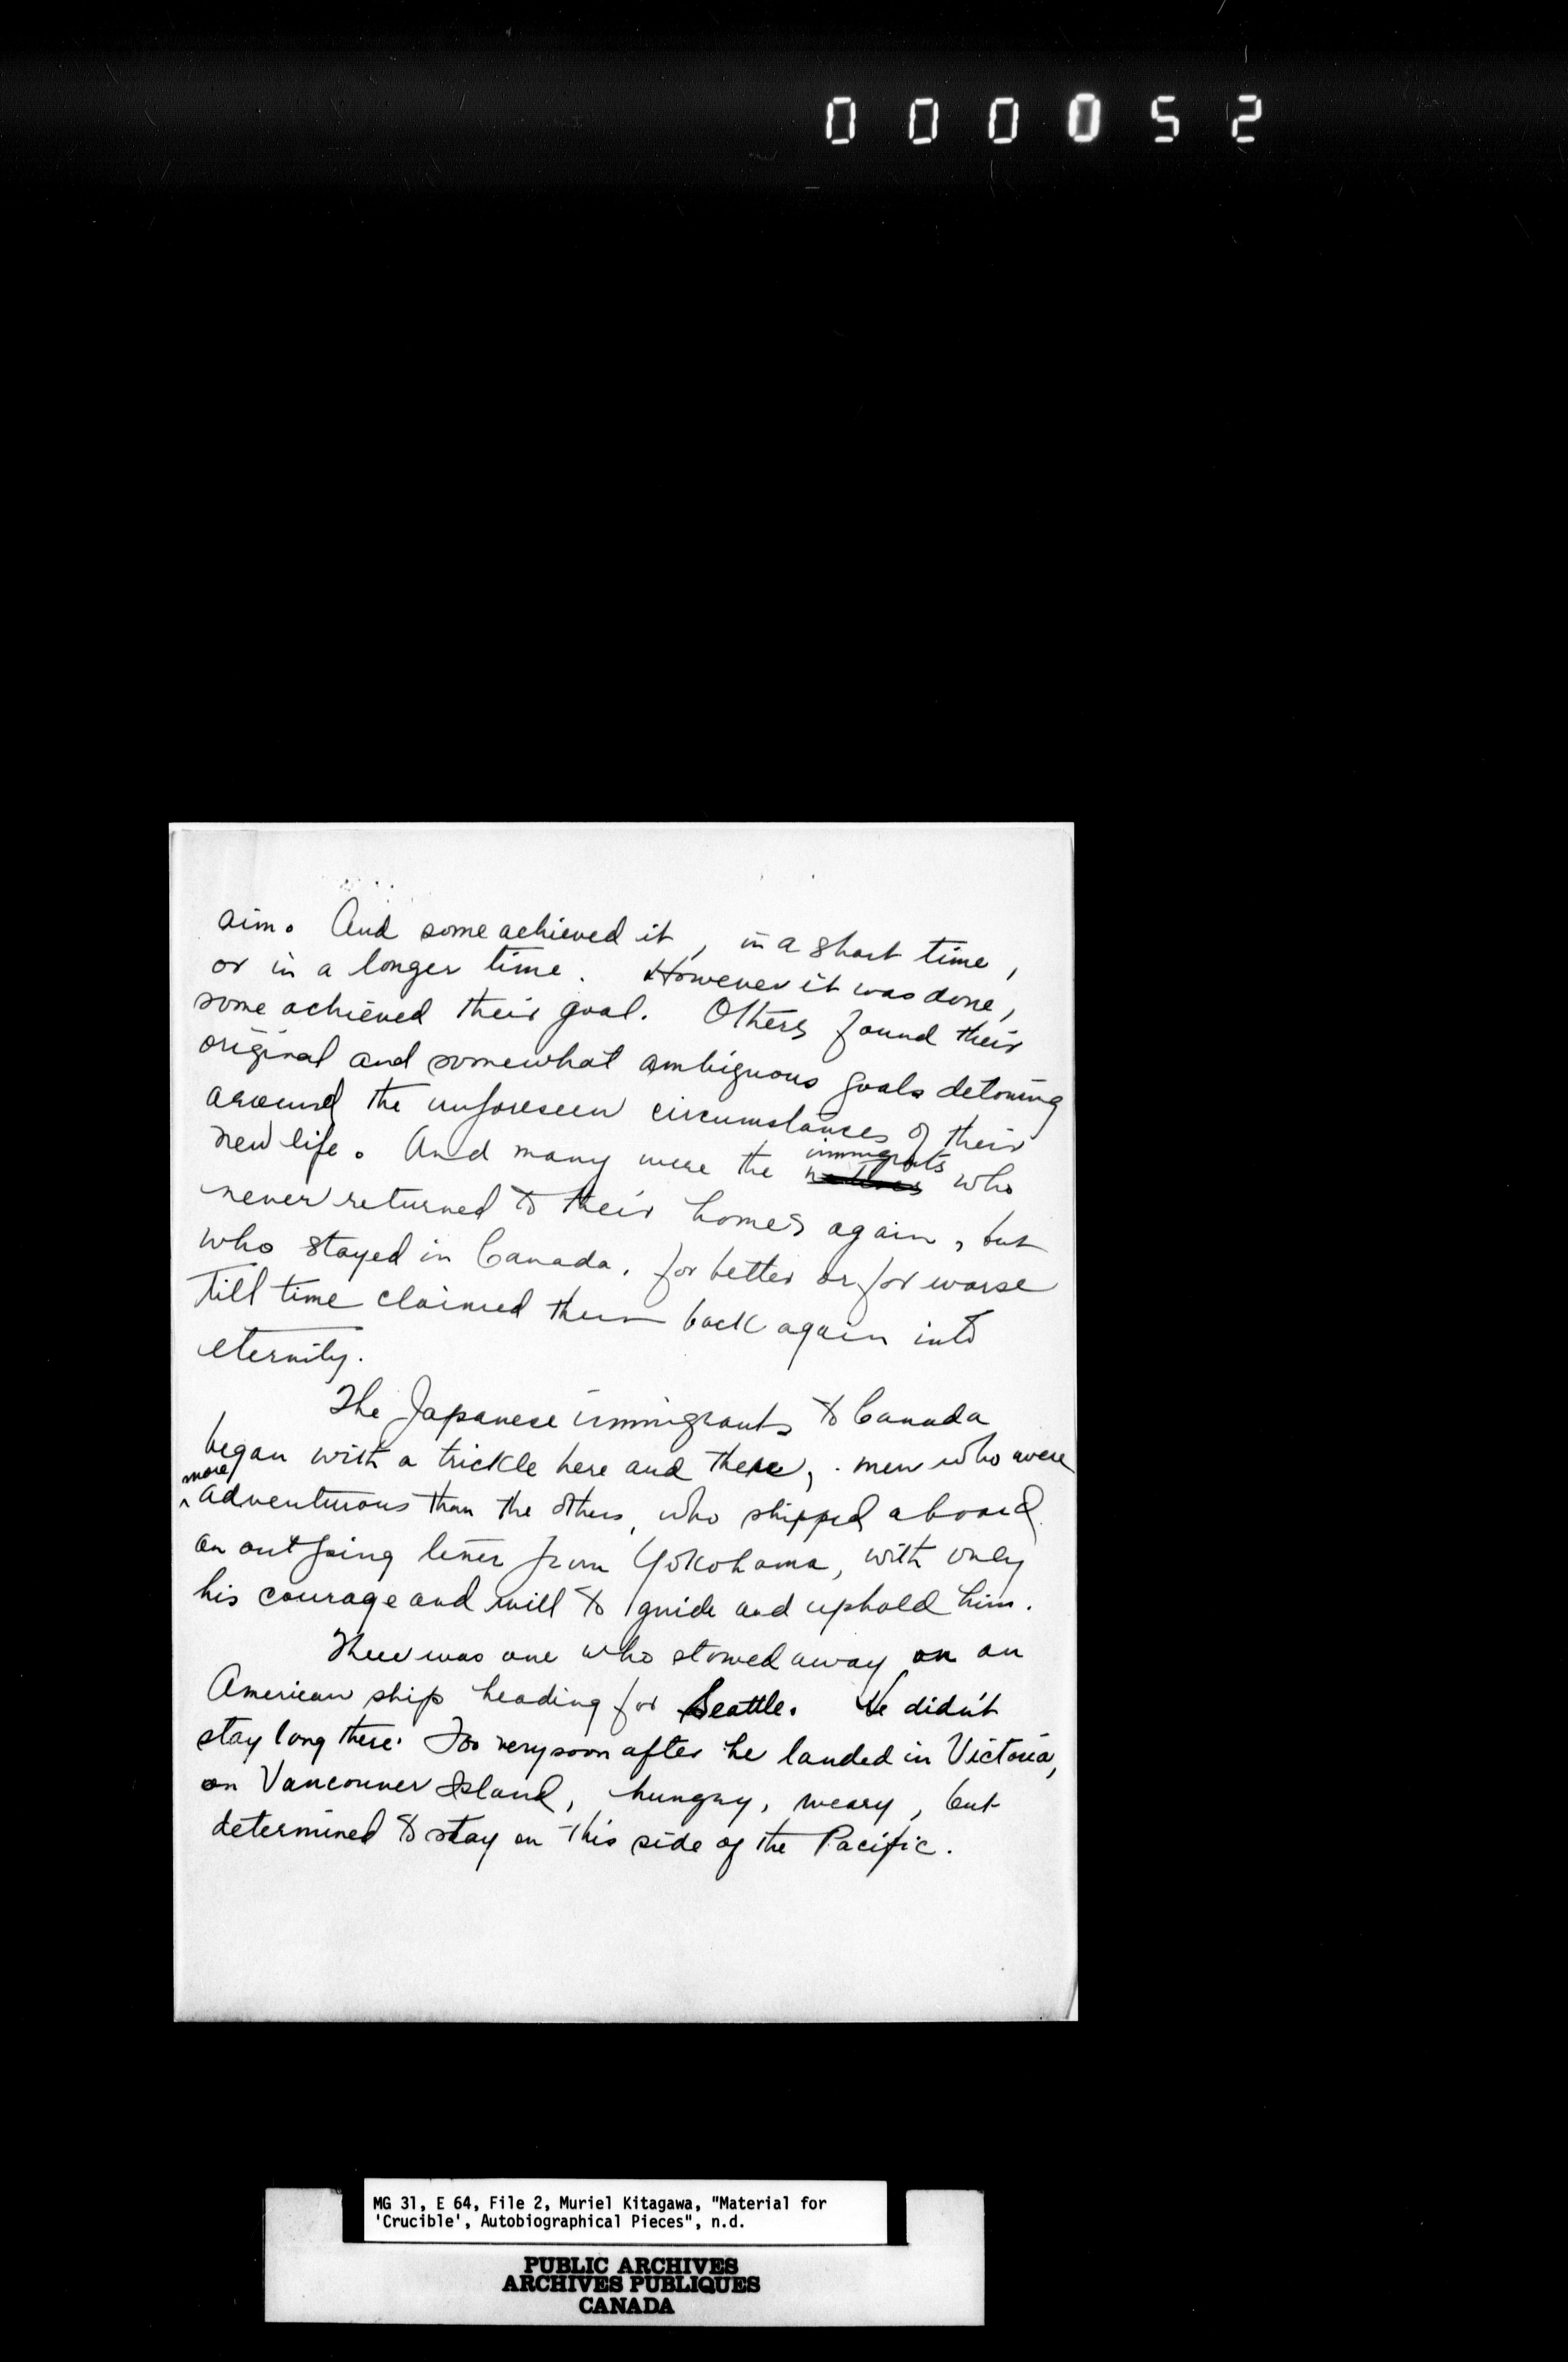 000052
aim. And some achieved it, in a short time,
or in a longer time. However it was done,
some achieved their goal. Others found their
original and somewhat ambiguous goals detouring
around the unforeseen circumstances of their
immigrants
new life. And many were the natives who
never returned to their homes again, but
who stayed in Canada, for better or for worse
till time claimed them back again into
eternity.
The Japanese immigrants to Canada
began with a trickle here and there, men who were
more
adventurous than the others, who shipped aboard
an outgoing liner from Yokohama, with only
his courage and will to guide and uphold him.
There was one who stowed away on an
American ship heading for Seattle. He didn't
stay long there. For very soon after he landed in Victoria,
on Vancouver Island, hungry, weary, but
determined to stay on this side of the Pacific.
MG 31, E 64, File 2, Muriel Kitagawa, "Material for
'Crucible', Autobiographical Pieces", n.d.
PUBLIC ARCHIVES
ARCHIVES PUBLIQUES
CANADA